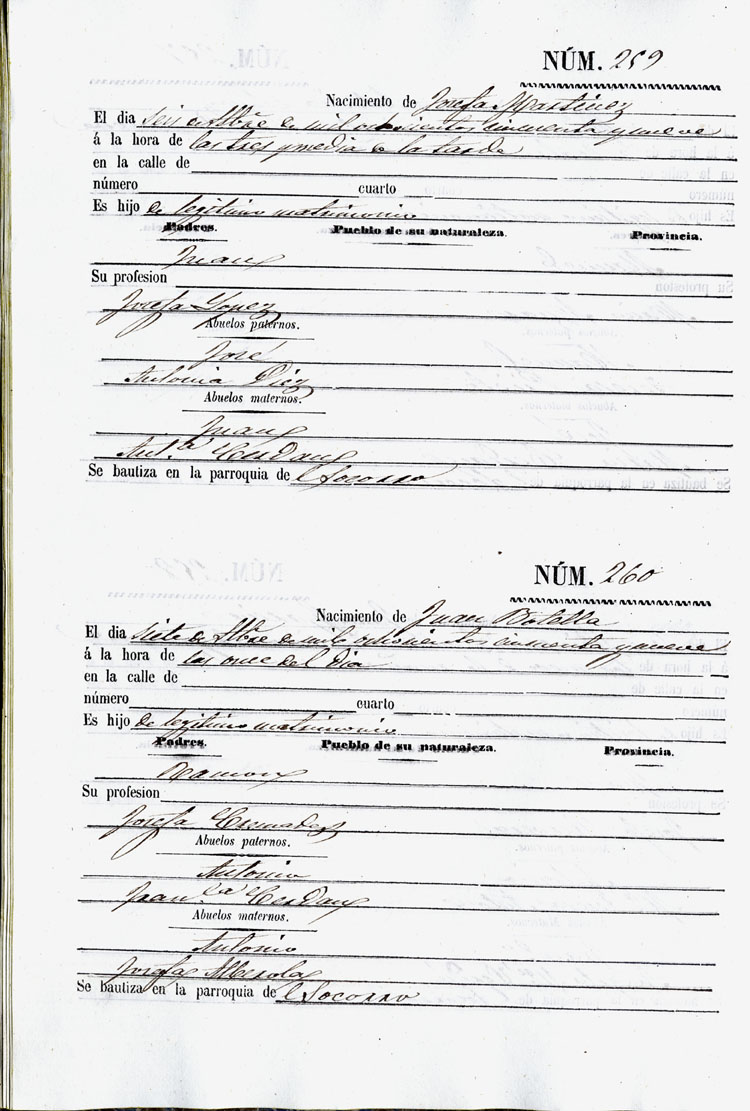 NÚM. 259
Nacimiento de Josefa Martinez
El dia seis de Sbre de mil ochocientos cincuenta y nueve
á la hora de las tres y media de la tarde
en la calle de
número cuarto
Es hijo de legitimo matrimonio
Padres. Pueblo de su naturaleza. Provincia.
Juan
Su profesion
Josefa Lopez
Abuelos paternos.
José
Antonia Diez
Abuelos maternos.
Juan
Ant.ª Cerdan
Se bautiza en la parroquia de l Socorro
NÚM. 260
Nacimiento de Juan Botella
El dia siete de Sbre de mil ochocientos cincuenta y nueve
á la hora de las once del dia
en la calle de
número cuarto
Es hijo de legitimo matrimonio
Padres. Pueblo de su naturaleza. Provincia.
Ramon
Su profesion
Josefa Cremades
Abuelos paternos.
Antonio
Fran.ca Cerdan
Abuelos maternos.
Antonio
Josefa Alberola
Se bautiza en la parroquia de l Socorro